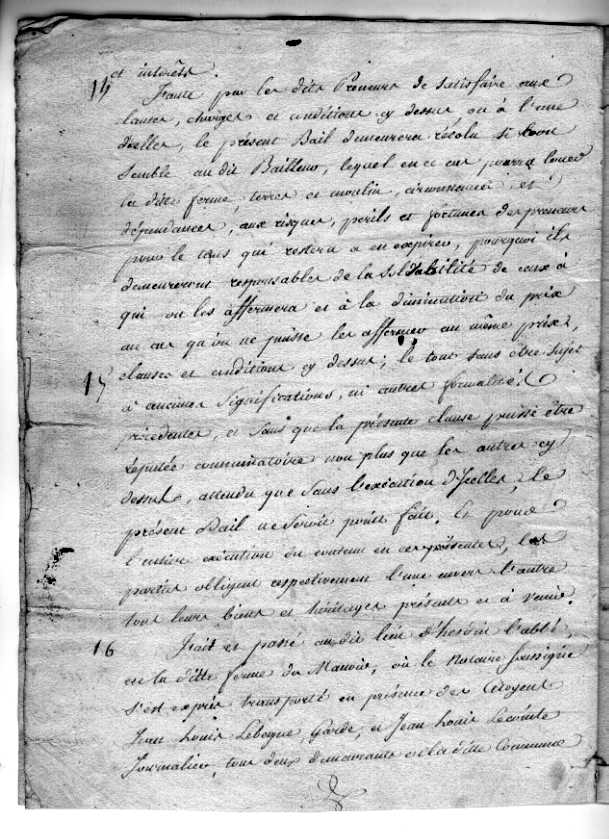 et intérêts.
14 Faute par les dits Preneurs de satisfaire aux
clauses, charges et conditions cy dessus ou à l'une
d'icelles, le présent Bail demeurera résolu si bon
semble au dit Bailleur, lequel en ce cas pourra louer
la dite ferme, terres et moulin, circonstances et
dépendances, aux risques, perils et fortunes des preneurs
pour le tems qui restera a en expirer, pourquoi ils
demeureront responsables de la Solvabilité de ceux à
qui on les affermera et à la diminution du prix
au cas qu'on ne puisse les affermer au même prix,
clauses et conditions cy dessus; le tout sans être sujet
15 à aucunes significations, ni autres formalités
précédentes, et sans que la présente clause puisse être
réputée comminatoire non plus que les autres cy
dessus, attendu que sans l'exécution d'Icelles, le
présent Bail ne seroit point fait. Et pour
l'entière exécution du contenu en ces présentes, les
parties obligent respectivement l'une envers l'autre
tous leurs biens et héritages présents et à venir.
16 Fait et passé au dit lieu d'hesdin l'abbé,
en la ditte ferme du Manoir, où le Notaire soussigné
s'est exprès transporté en présence des Citoyens
Jean Louis Leborgne, Garde, et Jean Louis Lecomte
Journalier, tous deux demeurants en la ditte Commune